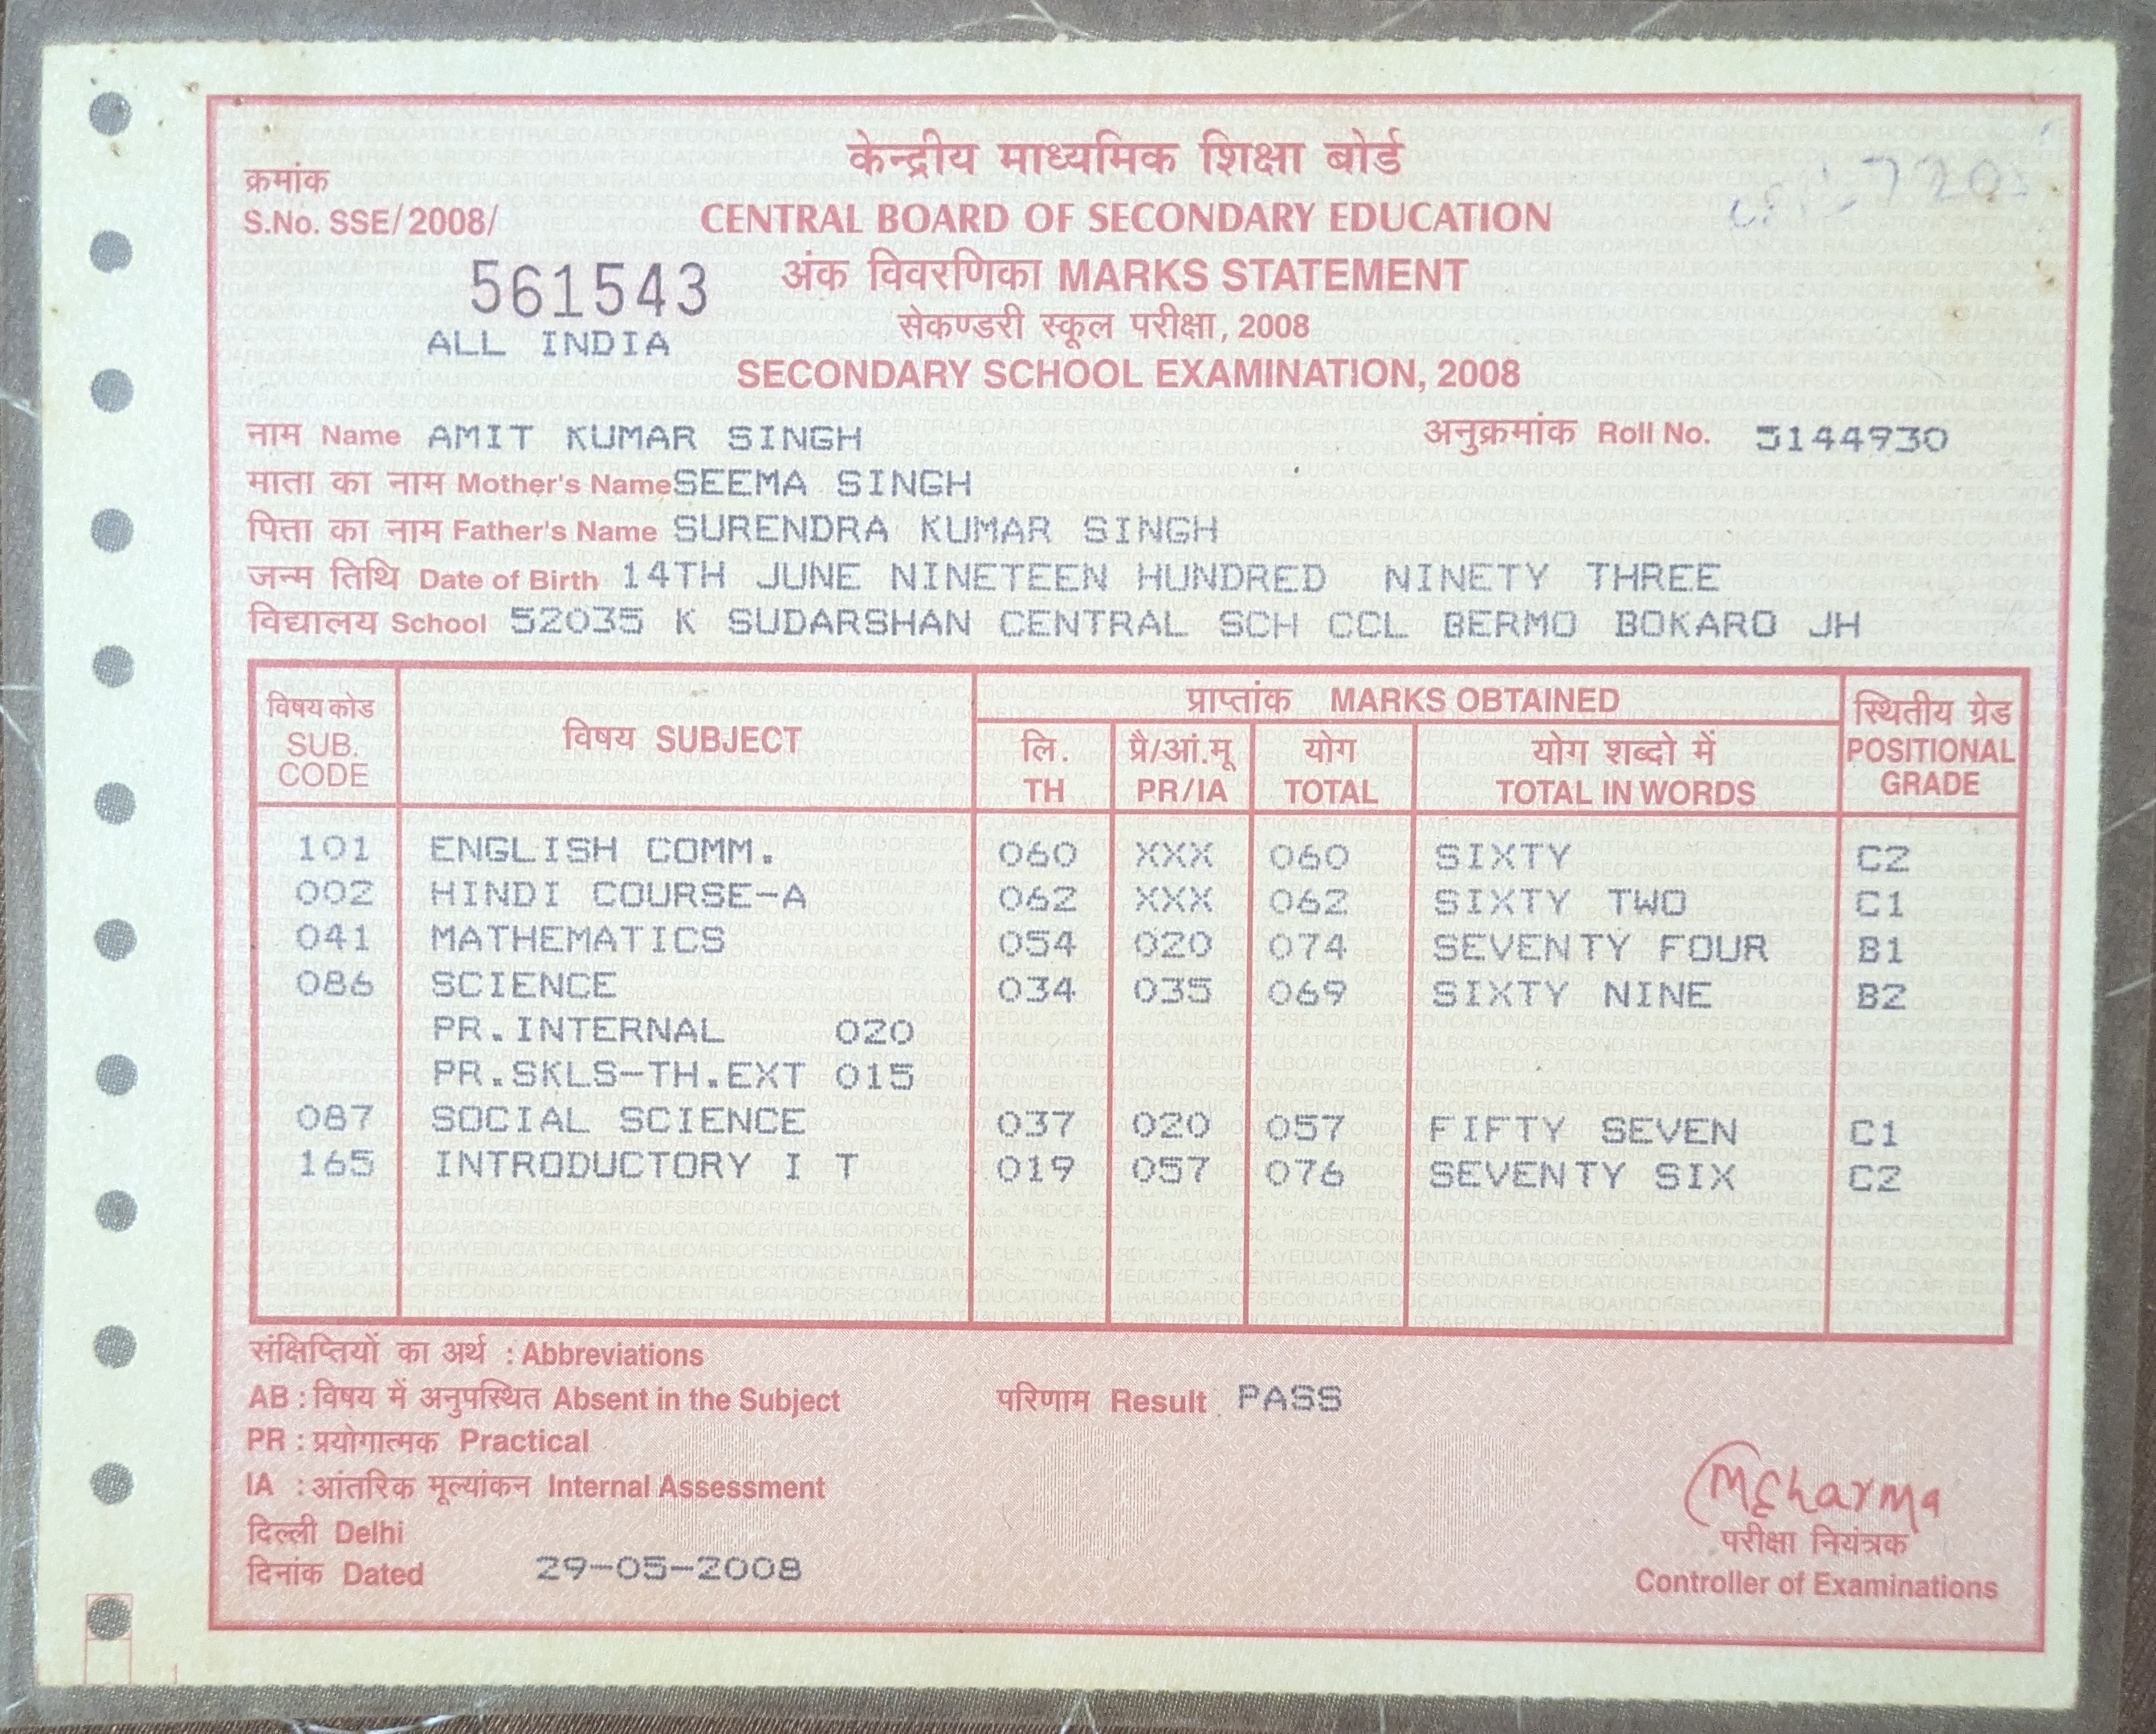 केन्द्रीय माध्यमिक शिक्षा बोर्ड
क्रमांक
S.No. SSE/2008/ CENTRAL BOARD OF SECONDARY EDUCATION
561543 अंक विवरणिका MARKS STATEMENT
ALL INDIA सेकण्डरी स्कूल परीक्षा, 2008
SECONDARY SCHOOL EXAMINATION, 2008
नाम Name AMIT KUMAR SINGH अनुक्रमांक Roll No. 5144930
माता का नाम Mother's Name SEEMA SINGH
पिता का नाम Father's Name SURENDRA KUMAR SINGH
जन्म तिथि Date of Birth 14TH JUNE NINETEEN HUNDRED NINETY THREE
विद्यालय School 52035 K SUDARSHAN CENTRAL SCH CCL BERMO BOKARO JH
विषय कोड SUB. CODE विषय SUBJECT प्राप्तांक MARKS OBTAINED स्थितीय ग्रेड POSITIONAL GRADE
लि. TH प्रै/आं.मू PR/IA योग TOTAL योग शब्दो में TOTAL IN WORDS
101 ENGLISH COMM. 060 XXX 060 SIXTY C2
002 HINDI COURSE-A 062 XXX 062 SIXTY TWO C1
041 MATHEMATICS 054 020 074 SEVENTY FOUR B1
086 SCIENCE 034 035 069 SIXTY NINE B2
PR.INTERNAL 020
PR.SKLS-TH.EXT 015
087 SOCIAL SCIENCE 037 020 057 FIFTY SEVEN C1
165 INTRODUCTORY I T 019 057 076 SEVENTY SIX C2
संक्षिप्तियों का अर्थ : Abbreviations
AB : विषय में अनुपस्थित Absent in the Subject परिणाम Result PASS
PR : प्रयोगात्मक Practical
IA : आंतरिक मूल्यांकन Internal Assessment
दिल्ली Delhi
परीक्षा नियंत्रक
दिनांक Dated 29-05-2008 Controller of Examinations